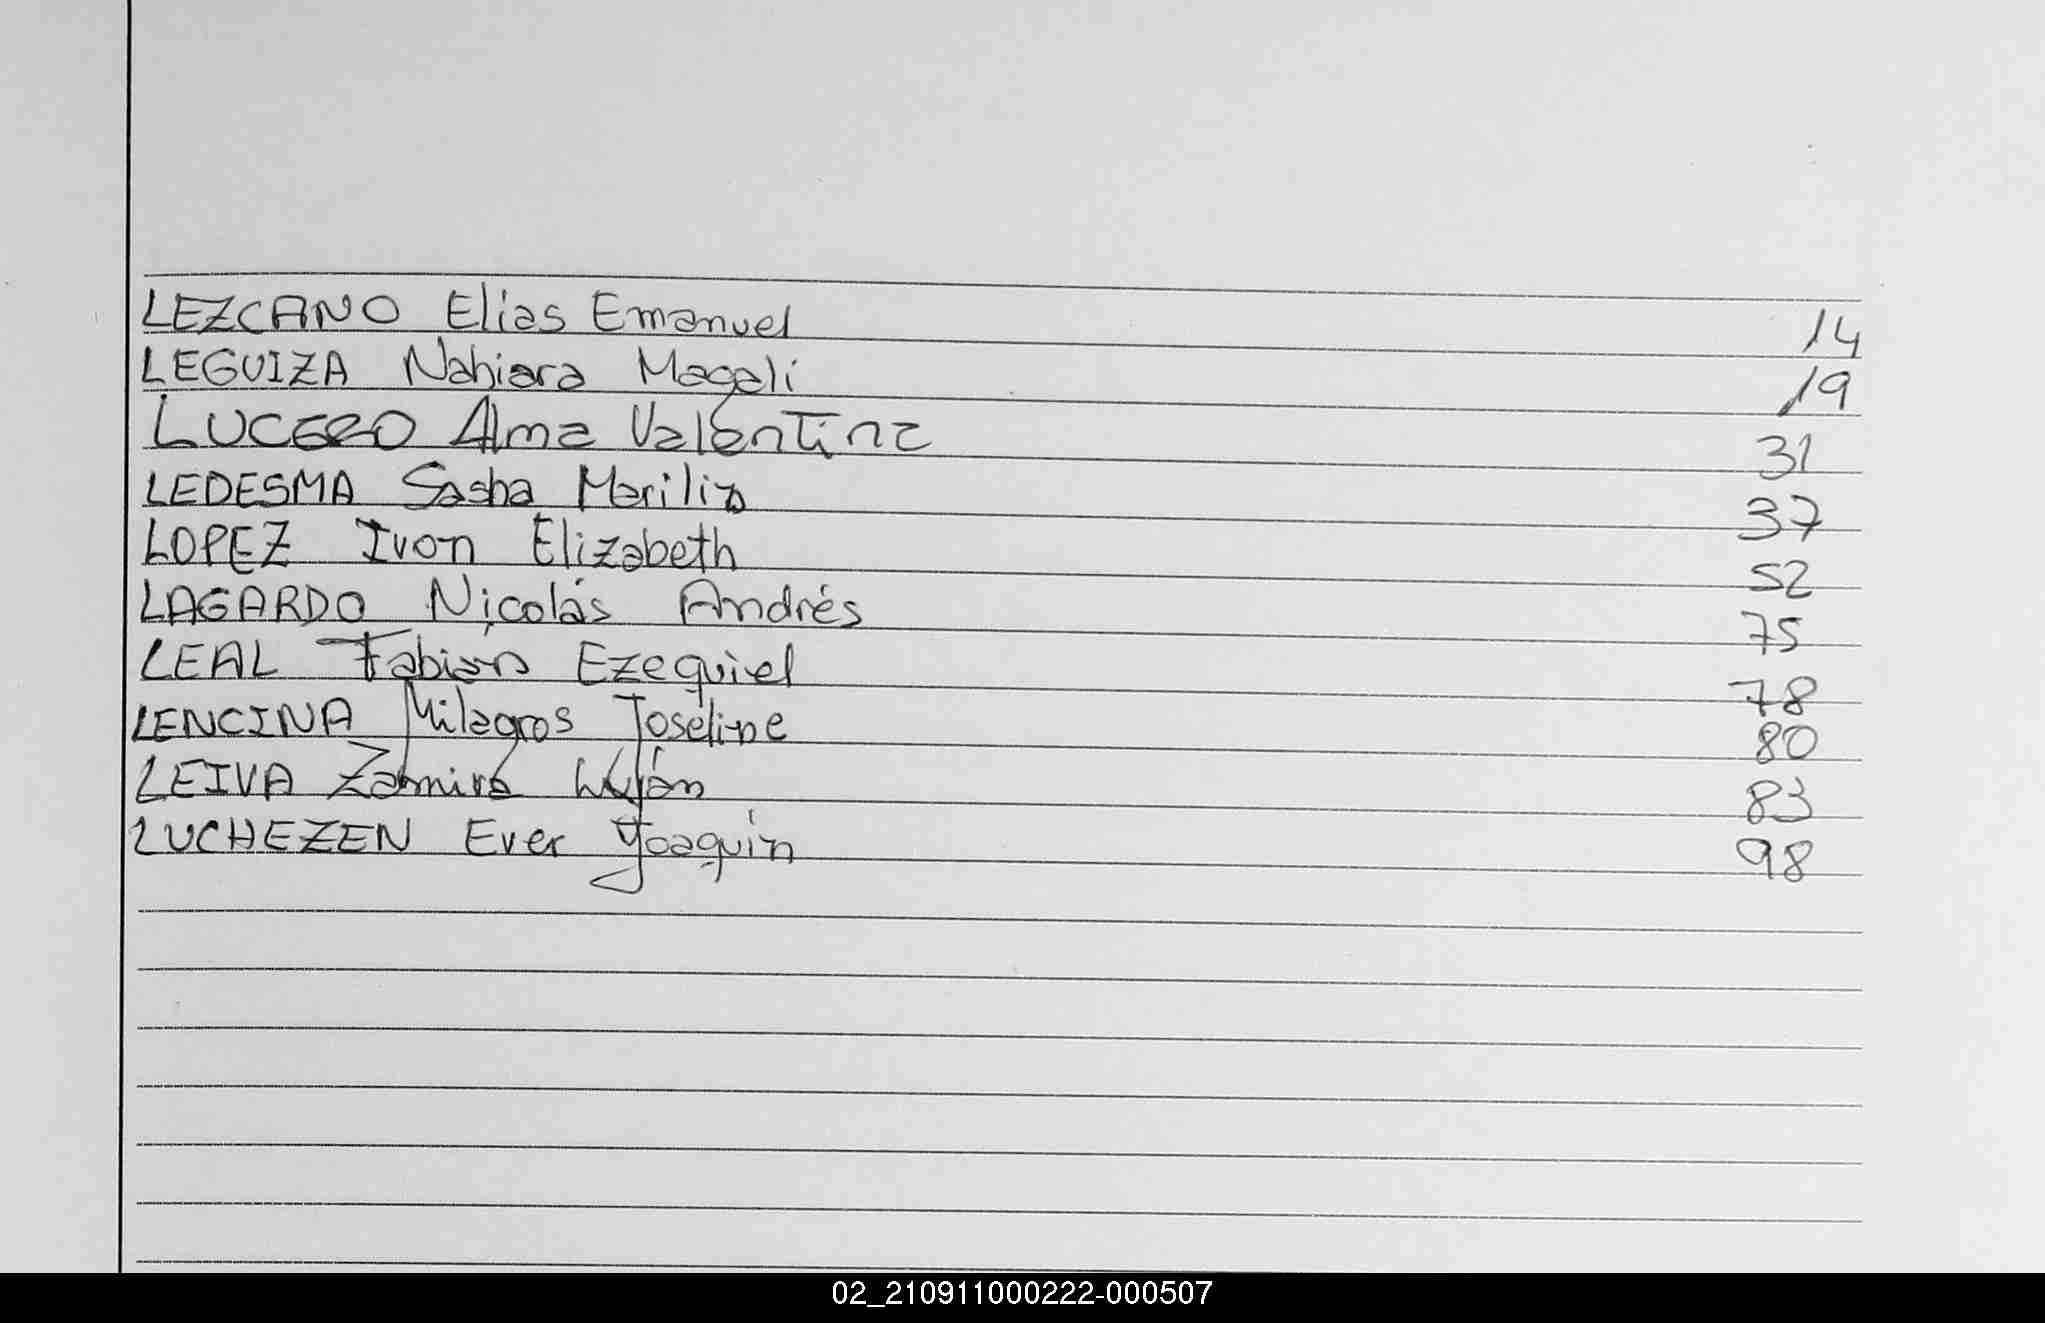 LEZCANO Elias Emanuel 14
LEGUIZA Nahiara Magali 19
LUCERO Alma Valentina 31
LEDESMA Sasha Marilin 37
LOPEZ Ivon Elizabeth 52
LAGARDO Nicolás Andrés 75
LEAL Fabian Ezequiel 78
LENCINA Milagros Joseline 80
LEIVA Zamira Luján 83
LUCHEZEN Ever Joaquín 98
02_210911000222-000507